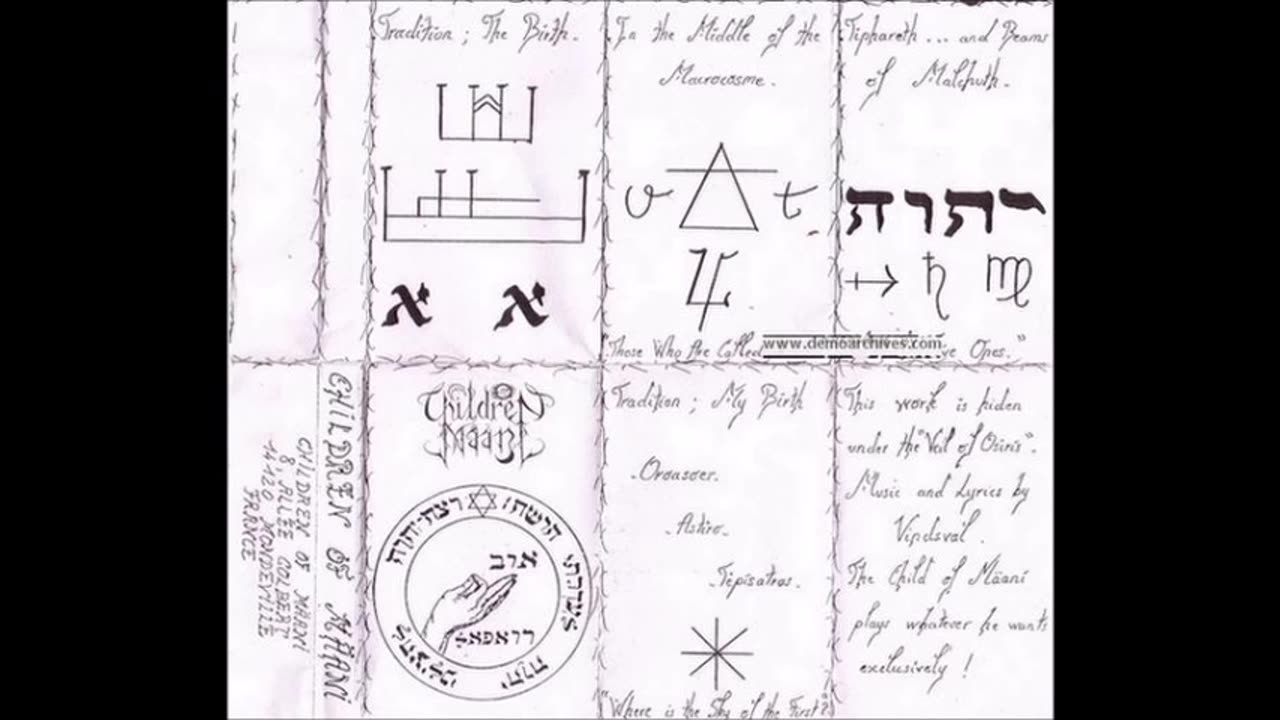 Tradition ; The Birth.
א א
In the Middle of the
Macrocosme.
v t
"Those Who Are Called
www.demoarchives.com
ve Ones."
Tiphareth ... and Beams
of Malchuth.
יתוה
CHiLDREN OF MÄANi
CHiLDREN OF MÄANi
8, ALLÉE COLBERT
14120 MONDEVILLE
FRANCE
Children
Maani
Tradition ; My Birth
- Astiro -
- Tepisatras. -
"Where is the Sky of the First?"
This work is hiden
under the "Veil of Osiris".
Music and Lyrics by
Vindsval.
The Child of Mäani
plays whatever he wants
exclusively !